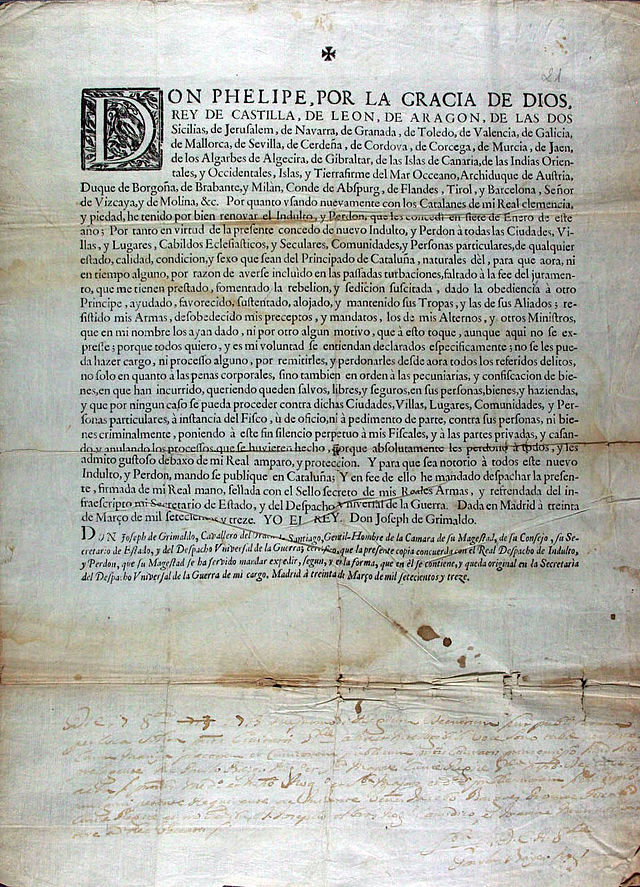 ✠
21
DON PHELIPE, POR LA GRACIA DE DIOS,
REY DE CASTILLA, DE LEON, DE ARAGON, DE LAS DOS
Sicilias, de Jerusalem, de Navarra, de Granada, de Toledo, de Valencia, de Galicia,
de Mallorca, de Sevilla, de Cerdeña, de Cordova, de Corcega, de Murcia, de Jaen,
de los Algarbes de Algecira, de Gibraltar, de las Islas de Canaria, de las Indias Orien-
tales, y Occidentales, Islas, y Tierrafirme del Mar Occeano, Archiduque de Austria,
Duque de Borgoña, de Brabante, y Milàn, Conde de Abspurg, de Flandes, Tirol, y Barcelona, Señor
de Vizcaya, y de Molina, &c. Por quanto vsando nuevamente con los Catalanes de mi Real clemencia,
y piedad, he tenido por bien renovar el Indulto, y Perdon, que les concedì en siete de Enero de este
año; Por tanto en virtud de la presente concedo de nuevo Indulto, y Perdon à todas las Ciudades, Vi-
llas, y Lugares, Cabildos Eclesiasticos, y Seculares, Comunidades, y Personas particulares, de qualquier
estado, calidad, condicion, y sexo que sean del Principado de Cataluña, naturales dèl, para que aora, ni
en tiempo alguno, por razon de averse incluìdo en las passadas turbaciones, faltado à la fee del juramen-
to, que me tienen prestado, fomentado la rebelion, y sedicion suscitada, dado la obediencia à otro
Principe, ayudado, favorecido, sustentado, alojado, y mantenido sus Tropas, y las de sus Aliados; re-
sistido mis Armas, desobedecido mis preceptos, y mandatos, los de mis Alternos, y otros Ministros,
que en mi nombre los ayan dado, ni por otro algun motivo, que à esto toque, aunque aqui no se ex-
presse; porque todos quiero, y es mi voluntad se entiendan declarados especificamente; no se les pue-
da hazer cargo, ni processo alguno, por remitirles, y perdonarles desde aora todos los referidos delitos,
no solo en quanto à las penas corporales, sino tambien en orden à las pecuniarias, y confiscacion de bie-
nes, en que han incurrido, queriendo queden salvos, libres, y seguros, en sus personas, bienes, y haziendas,
y que por ningun caso se pueda proceder contra dichas Ciudades, Villas, Lugares, Comunidades, y Per-
sonas particulares, à instancia del Fisco, ù de oficio, ni à pedimento de parte, contra sus personas, ni bie-
nes criminalmente, poniendo à este fin silencio perpetuo à mis Fiscales, y à las partes privadas, y casan-
do, y anulando los processos, que se huvieren hecho, porque absolutamente les perdono à todos, y les
admito gustoso debaxo de mi Real amparo, y proteccion. Y para que sea notorio à todos este nuevo
Indulto, y Perdon, mando se publique en Cataluña; Y en fee de ello he mandado despachar la presen-
te, firmada de mi Real mano, sellada con el Sello secreto de mis Reales Armas, y refrendada del in-
fraescripto mi Secretario de Estado, y del Despacho Vniversal de la Guerra. Dada en Madrid à treinta
de Março de mil setecientos y treze. YO EL REY. Don Joseph de Grimaldo.
DON Joseph de Grimaldo, Cavallero del Orden de Santiago, Gentil-Hombre de la Camara de su Magestad, de su Consejo, su Se-
cretario de Estado, y del Despacho Vniversal de la Guerra; certifico, que la presente copia concuerda con el Real Despacho de Indulto,
y Perdon, que su Magestad se ha servido mandar expedir, segun, y en la forma, que en èl se contiene, y queda original en la Secretaria
del Despacho Vniversal de la Guerra de mi cargo. Madrid à treinta de Março de mil setecientos y treze.